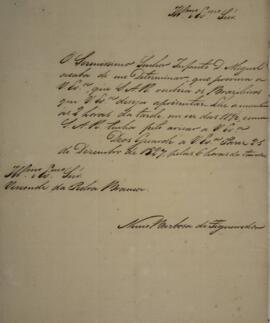 Illmo. e Exmo. Snr.
O Serenissimo Senhor Infante D. Miguel
acaba de me Determinar que previna a
V Exa. que S.A.R. receberá os Brazileiros
que V Exa. deseja apresentar-lhe
as 2 horas da tarde, em vez das
S.A.R. tinha feito avisar a V Exa.
Deos Guarde a V Exa. 25
de Dezembro de 1827, pelas 6 horas da tarde
Illmo. e Exmo. Snr.
Visconde da Pedra Branca.
Nuno Barbosa de Figueiredo